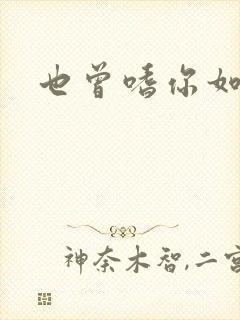 也曾嗜你如
神奈木智,二宫